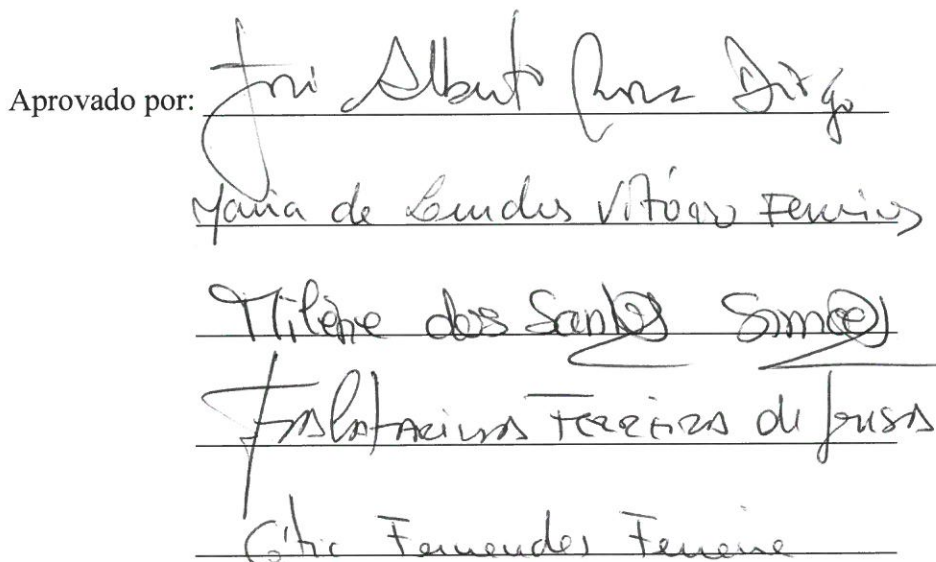 Aprovado por: José Alberto Rosa Diogo
Maria de Lourdes Vitório Ferreira
Milene dos Santos Simões
Ferreira de Sousa
Cátia Fernandes Ferreira